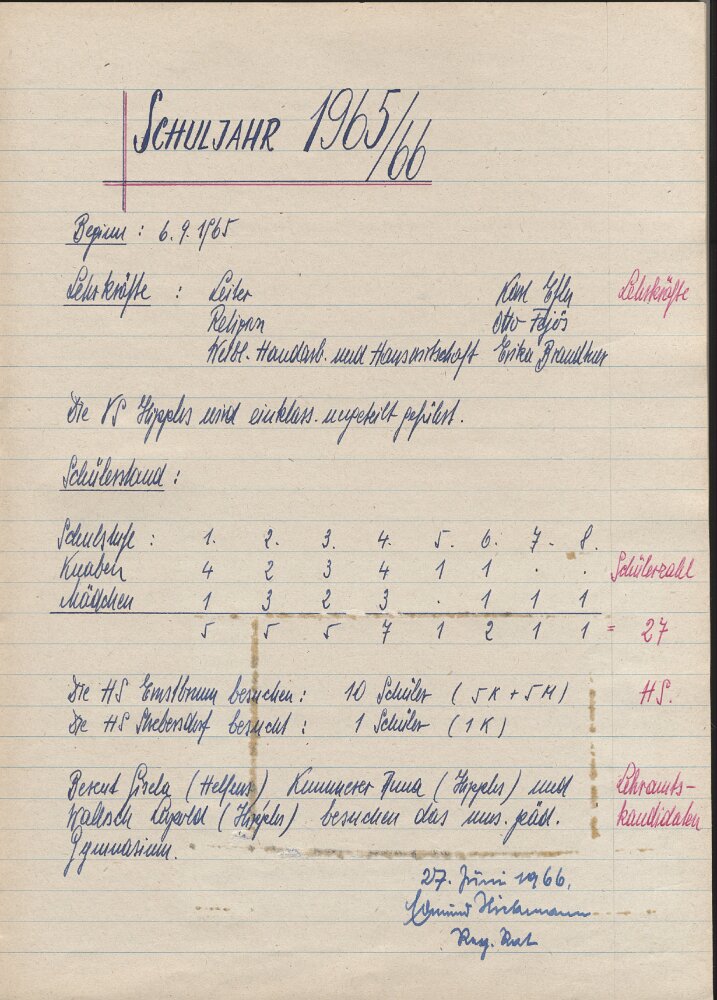 SCHULJAHR 1965/66
Beginn : 6. 9. 1965
Lehrkräfte : Leiter Karl Lehrkräfte
Religion Otto Fejös
Weibl. Handarb. und Hauswirtschaft Erika Brandtner
Die VS Hipples wird einklass. ungeteilt geführt.
Schülerstand :
Schulstufe : 1. 2. 3. 4. 5. 6. 7. 8.
Knaben 4 2 3 4 1 1 . . Schülerzahl
Mädchen 1 3 2 3 . 1 1 1
5 5 5 7 1 2 1 1 = 27
Die HS Ernstbrunn besuchen : 10 Schüler (5 K + 5 M) HS.
Die HS Strebersdorf besucht : 1 Schüler (1 K)
Gisela (Helfens) Kummerer Anna (Hipples) und Lehramts-
Leopold (Hipples) besuchen das mus. päd. kandidaten
Gymnasium.
27. Juni 1966.
Edmund
Reg. Rat